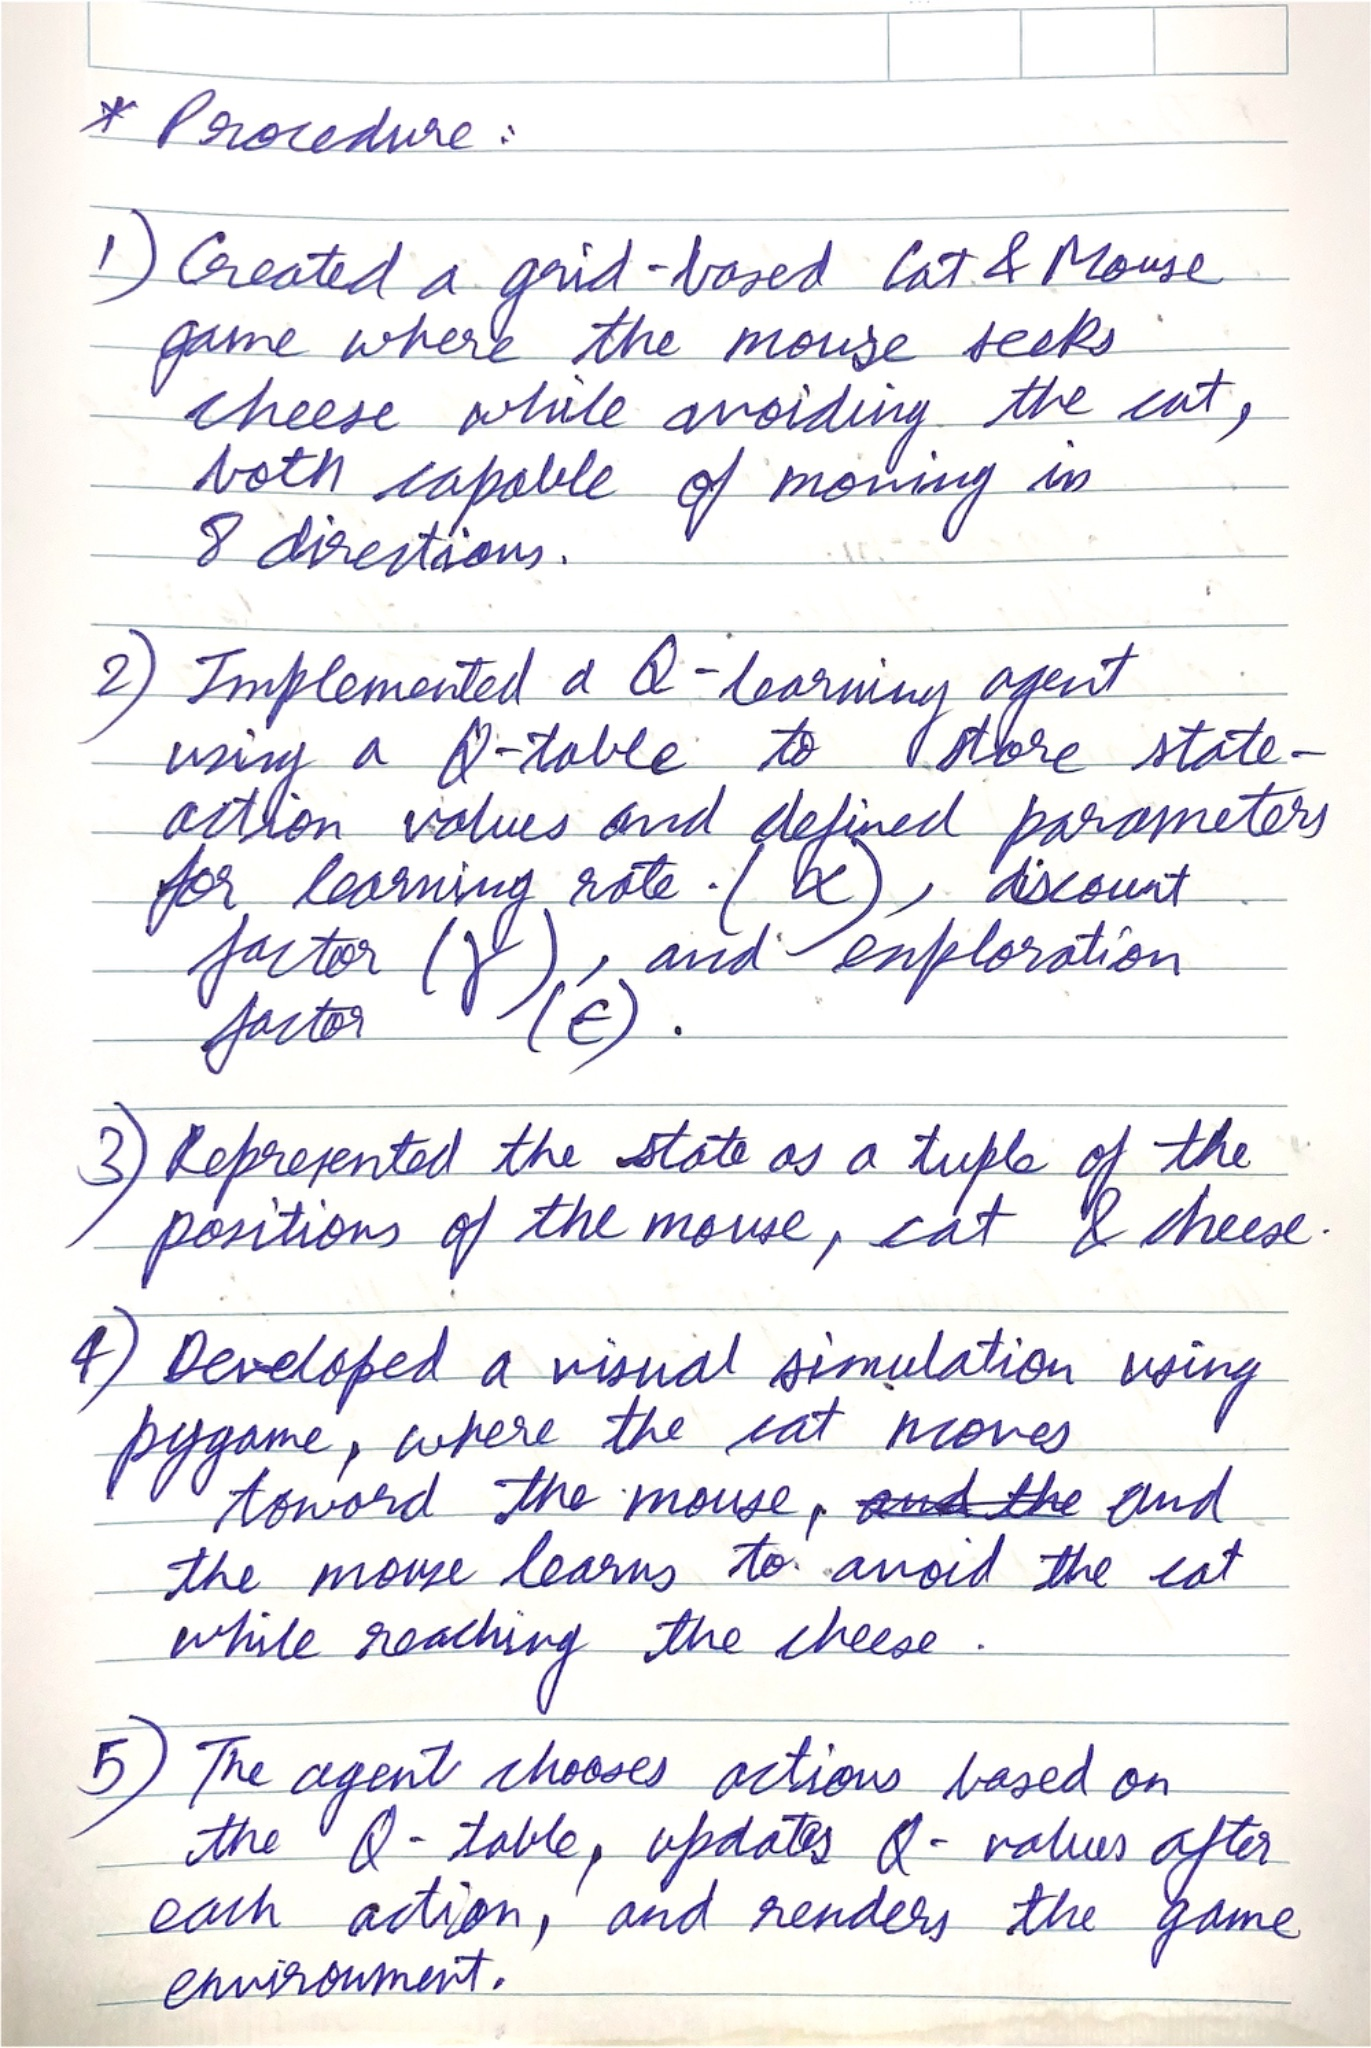 * Procedure :
1) Created a grid-based Cat & Mouse
game where the mouse seeks
cheese while avoiding the cat,
both capable of moving in
8 directions.
2) Implemented a Q-learning agent
using a Q-table to store state-
action values and defined parameters
for learning rate (α), discount
factor (γ), and exploration
factor (ϵ).
3) Represented the state as a tuple of the
positions of the mouse, cat & cheese.
4) Developed a visual simulation using
pygame, where the cat moves
toward the mouse, and the and
the mouse learns to avoid the cat
while reaching the cheese.
5) The agent chooses actions based on
the Q-table, updates Q-values after
each action, and renders the game
environment.